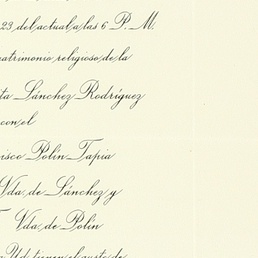 23 del actual a las 6 P. M.
matrimonio religioso de la
ta Sánchez Rodríguez
con el
isco Polín Tapia
Vda. de Sánchez y
Vda. de Polín
Ud. tienen el gusto de